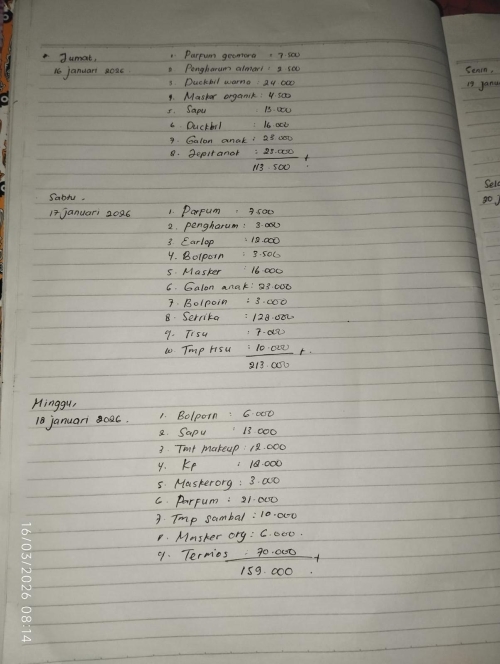 * Jumat,
16 januari 2026
1. Parpum geomora : 7.500
2. Pengharum almari : 3.500
3. Duckbil warna : 24.000
4. Masker organik : 4.500
5. Sapu : 13.000
6. Duckbil : 16.000
7. Galon anak : 23.000
8. Jepit anak : 23.000
113.500
Sabtu.
17 januari 2026
1. Parpum : 7.500
2. pengharum : 3.000
3. Earlop : 12.000
4. Bolpoin : 3.500
5. Masker : 16.000
6. Galon anak : 23.000
7. Bolpoin : 3.000
8. Setrika : 128.000
9. Tisu : 7.000
10. Tmp tisu : 10.000 +
213.000
Minggu,
18 januari 2026.
1. Bolpoin : 6.000
2. Sapu : 13.000
3. Tmt makeup : 12.000
4. Kp : 18.000
5. Maskerorg : 3.000
6. Parfum : 21.000
7. Tmp sambal : 10.000
8. Masker org : 6.000.
9. Termos : 70.000 +
159.000.
Senin,
Sela
20 ja
16/03/2026 08:14